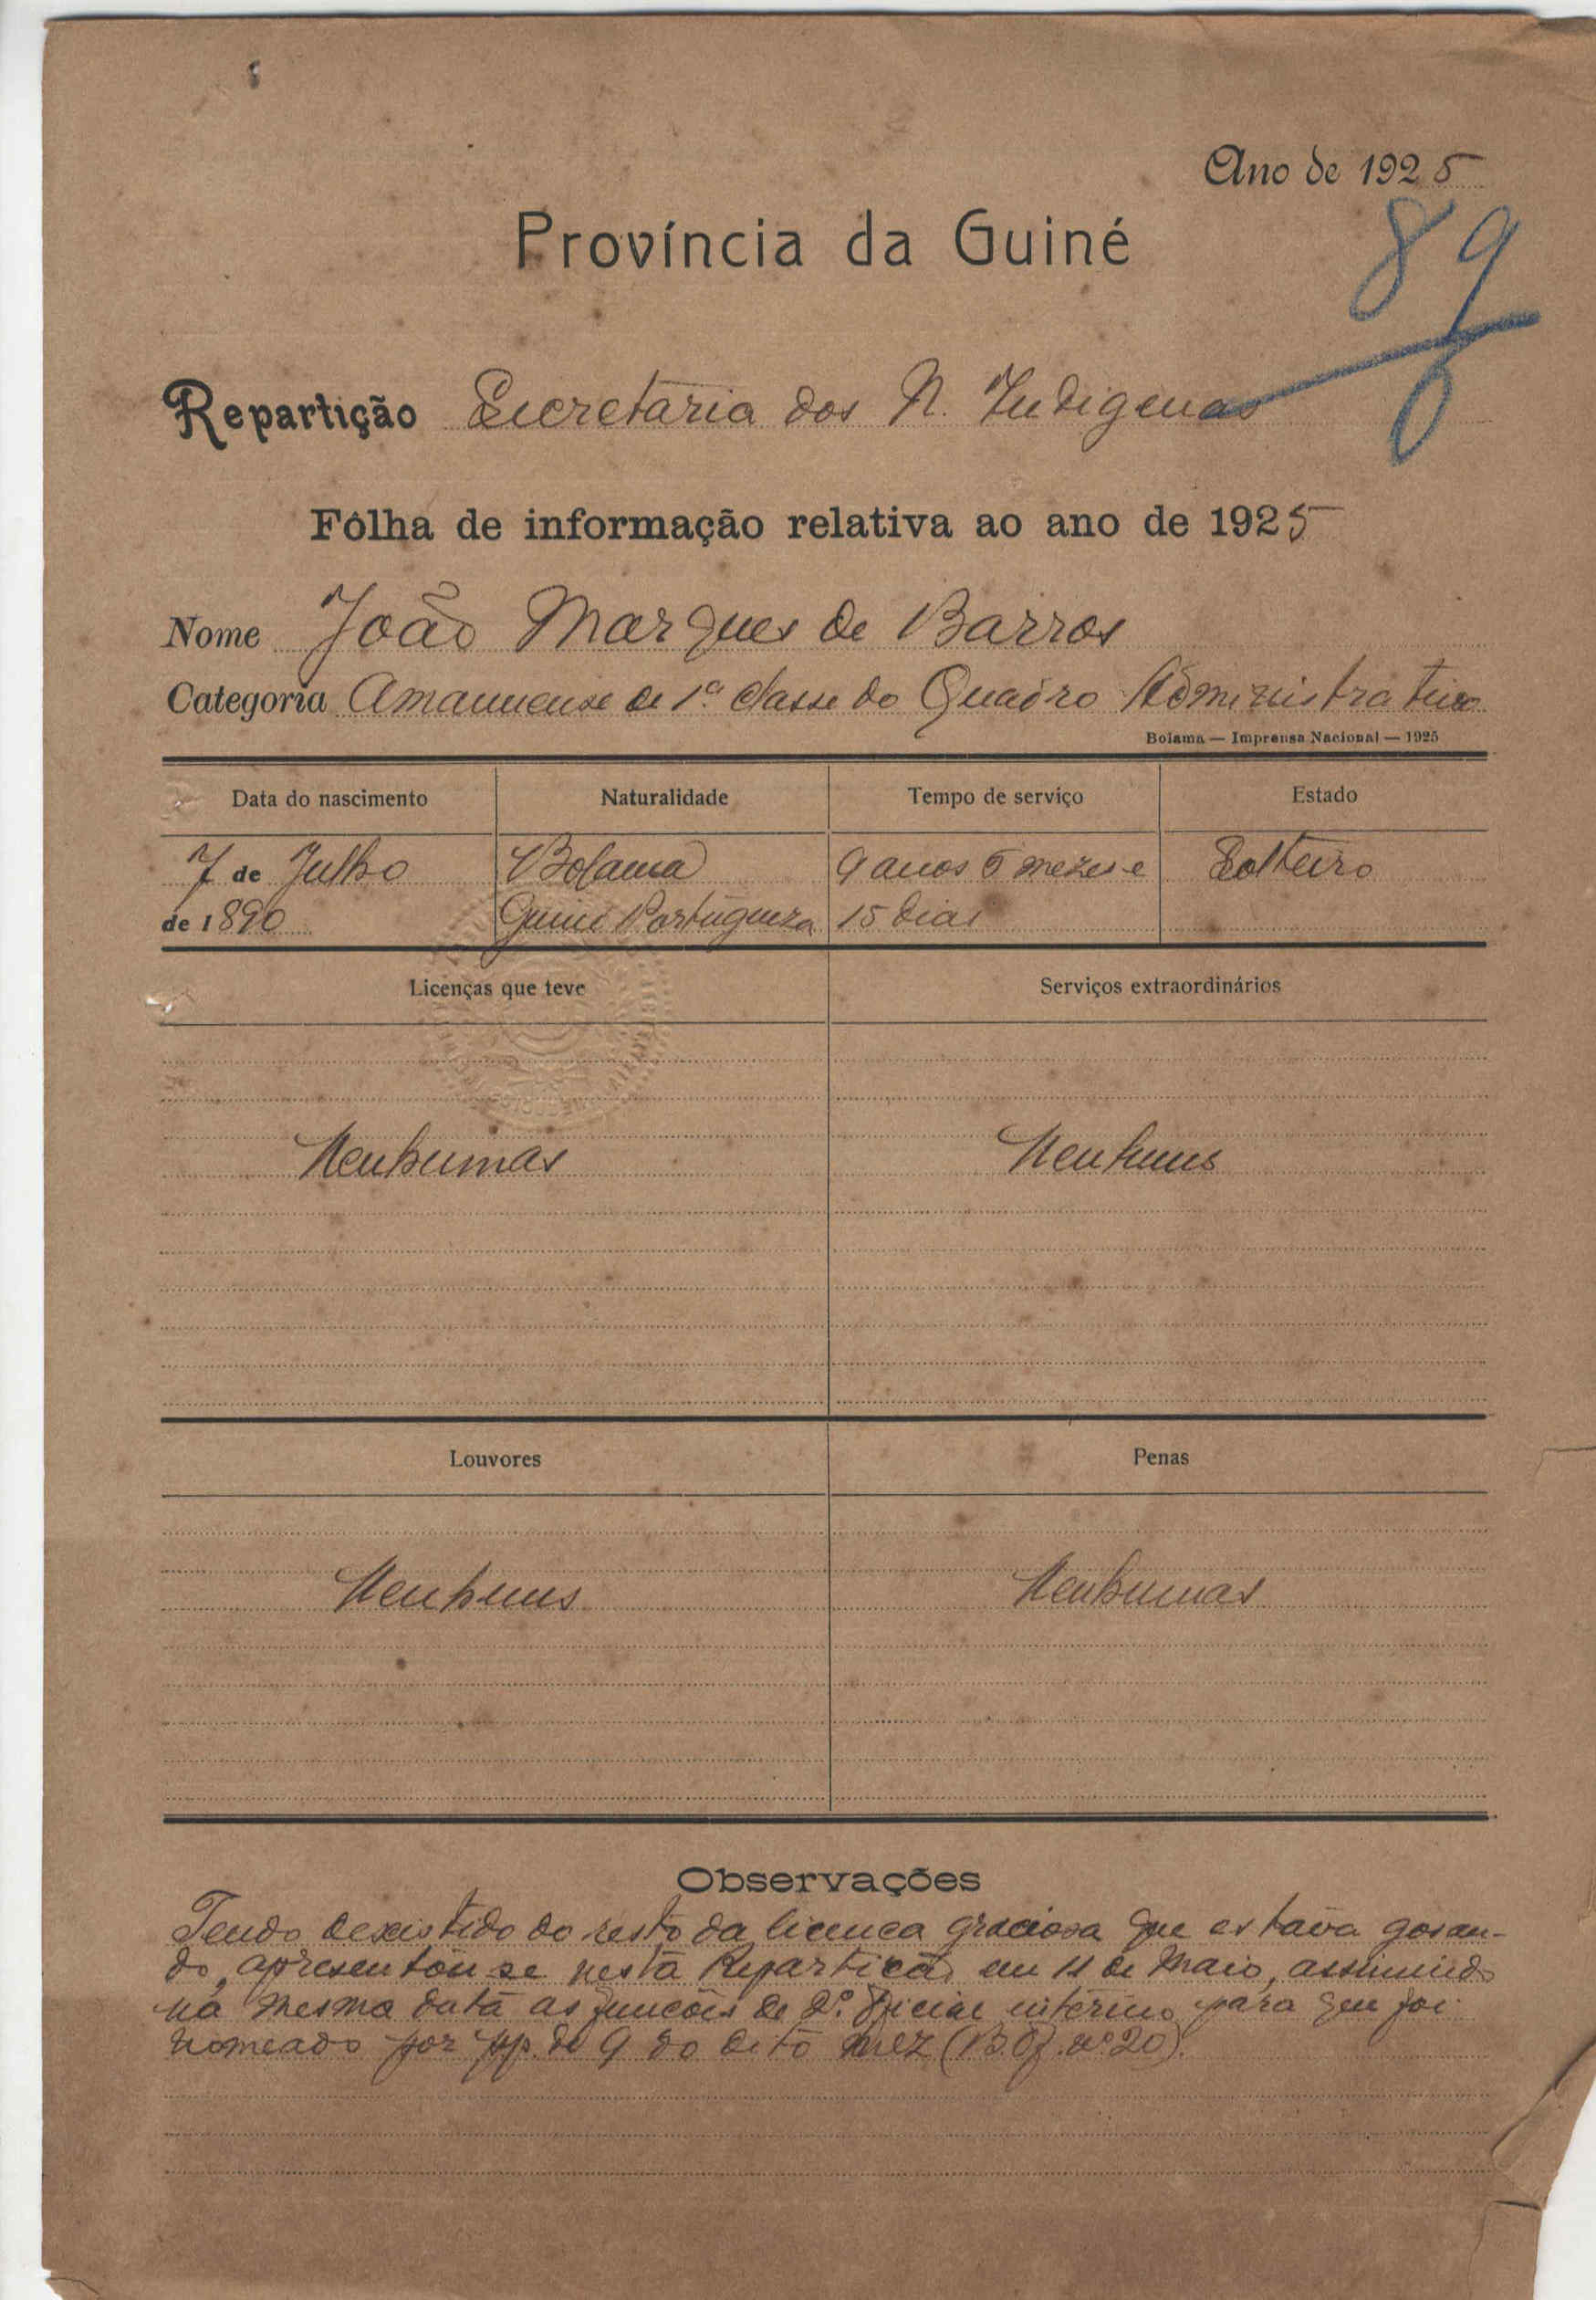 Ano de 1925
89
Província da Guiné
Repartição Secretaria dos N. Indigenas
Fôlha de informação relativa ao ano de 1925
Nome João Marques de Barros
Categoria Amanuense de 1ª classe do Quadro Administrativo
Bolama — Imprensa Nacional — 1925
Data do nascimento Naturalidade Tempo de serviço Estado
7 de Julho Bolama 9 anos 5 mezes e Solteiro
de 1890 Guiné Portugueza 15 dias
Licenças que teve Serviços extraordinários
Nenhumas Nenhuns
Louvores Penas
Nenhuns Nenhumas
Observações
Tendo desistido do resto da licença graciosa que estava gosan-
do, apresentou-se nesta Repartição em 11 de Maio, assumindo
na mesma data as funcões de 2º. Oficial interino para que foi
nomeado por pp. de 9 do dito mez (B. Of. nº 20).